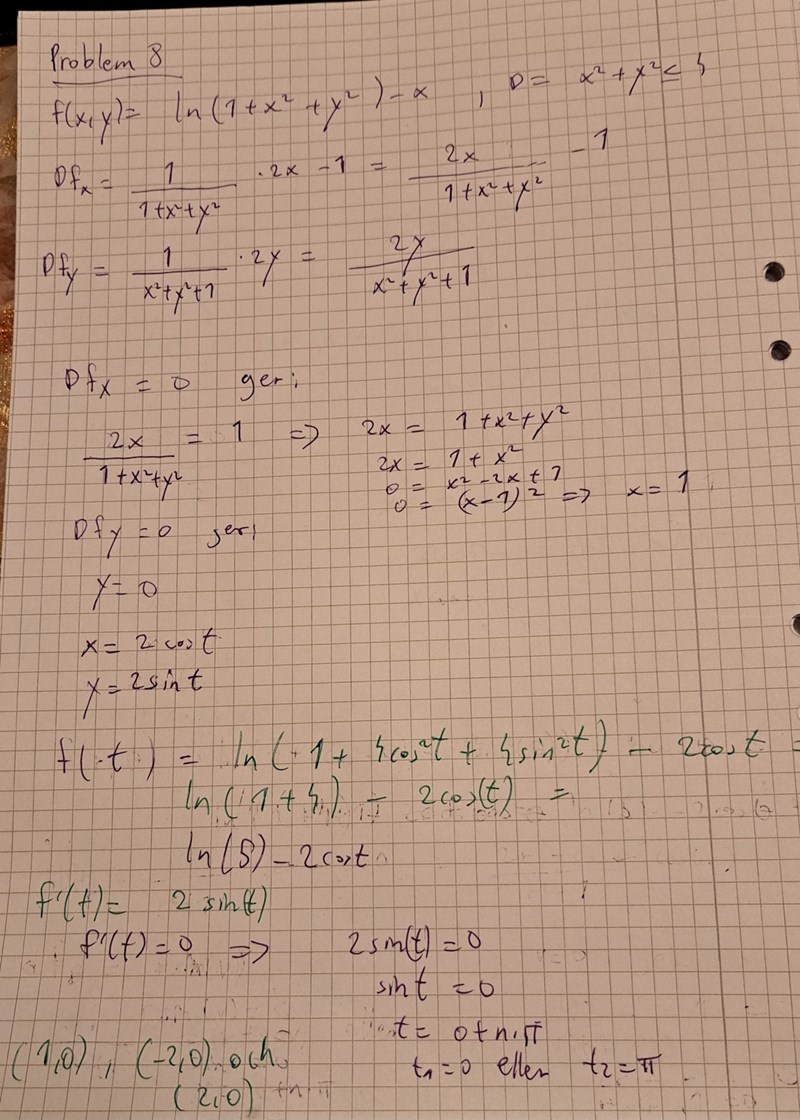 Problem 8
f(x,y)= ln(1+x² +y² )-x , D= x²+y²≤4
Dfx = 1/(1+x²+y²) ·2x -1 = 2x/(1+x²+y²) -1
Dfy = 1/(x²+y²+1) ·2y = 2y/(x²+y²+1)
Dfx = 0 ger:
2x/(1+x²+y²) = 1 => 2x = 1+x²+y²
2x = 1+x²
0 = x²-2x+1
0 = (x-1)² => x=1
Dfy=0 ger:
y=0
x= 2cost
y=2sint
f(t) = ln(1+ 4cos²t + 4sin²t) - 2cost =
ln(1+4) - 2cos(t) =
ln(5)-2cost
f'(t)= 2 sin(t)
f'(t)=0 => 2sin(t)=0
sint =0
t= 0+n·π
t₁=0 eller t₂=π
(1,0), (-2,0) och
(2,0)